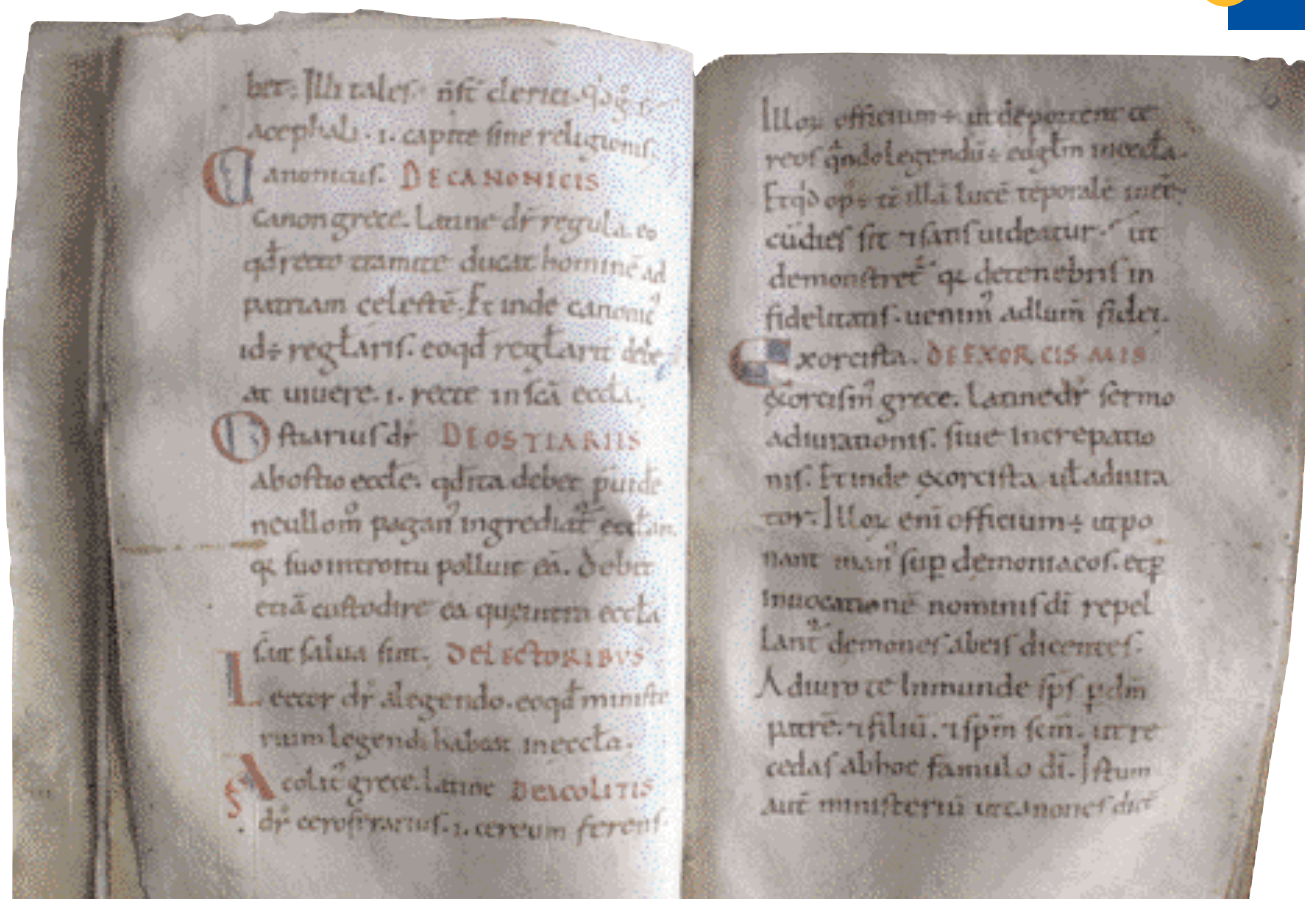 ber. Illi tales. n̄ st̄ clerici.
acephali .i. capite sine religionis.
Canonicus. DE CANONICIS
canon grece. Latine dr̄ regula. eo
qd̄ recto tramite ducat hominē ad
patriam celestē. Et inde canonic᾽
id÷ regłaris. eoqd̄ regłarit᾽ debe
at uiuere .i. recte in scā eccła.
Ostiarius dr̄ DE OSTIARIIS
ab ostio eccłe. qd̄ ita debet puide
ne ullom̄ pagan᾽ ingrediat᾽ eccłam
suo introitu polluit eā. Debet
etiā custodire ea que intra eccła
sūt salua sint. DE LECTORIBVS
Lector dr̄ a legendo. eoqd̄ ministe
rium legendi habeat in eccła.
Acolit᾽ grece. Latine DE ACOLITIS
dr̄ ceroferarius .i. cereum ferens.
Illoꝝ officium ÷ ut deportent ce
reos qn̄do legendū ÷ euglm̄ in eccła.
illā lucē tēporalē
cū dies sit ⁊ sans uideatur. ut
demonstret᾽ qa de tenebris in
fidelitatis. uenim᾽ ad lum̄ fidei.
Exorcista. DE EXORCISMIS
exorcism᾽ grece. Latine dr̄ sermo
adiurationis. siue increpatio
nis. Et inde exorcista ut adiura
tor. Illoꝝ eni officium ÷ ut po
nant man᾽ sup demoniacos. et ꝑ
inuocationē nominis dī repel
lant᾽ demones ab eis dicentes.
Adiuro te Inmunde sps̄ p dm̄
patrē. ⁊ filiū. ⁊ spm̄ scm̄. ut re
cedas ab hoc famulo dī. Istum
aut̄ ministeriū ut canones dict̄